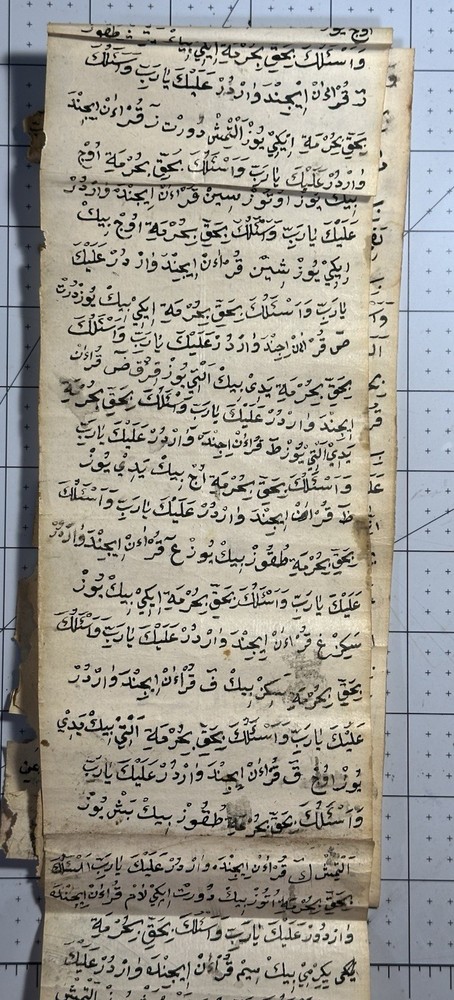 وَاَسْئَلُكَ بِحَقِّ بِحُرْمَةِ اِيكِي
ز قُرْاٰنْ اِيچِنْدَ وَارْدُرْ عَلَيْكَ يَارَبِّ وَاَسْئَلُكَ
بِحَقِّ بِحُرْمَةِ اِيكِي يُوزْ اَلْتْمِشْ دُورْتْ ز قُرْاٰنْ اِيچِنْدَ
وَارْدُرْ عَلَيْكَ يَارَبِّ وَاَسْئَلُكَ بِحَقِّ بِحُرْمَةِ اُوچْ
بِيكْ يُوزْ اُوتُوزْ سِينْ قُرْاٰنْ اِيچِنْدَ وَارْدُرْ
عَلَيْكَ يَارَبِّ وَاَسْئَلُكَ بِحَقِّ بِحُرْمَةِ اُوچْ بِيكْ
اِيكِي يُوزْ شِينْ قُرْاٰنْ اِيچِنْدَ وَارْدُرْ عَلَيْكَ
يَارَبِّ وَاَسْئَلُكَ بِحَقِّ بِحُرْمَةِ اِيكِي بِيكْ يُوزْ دُرْتْ
ص قُرْاٰنْ اِچِنْدَ وَارْدُرْ عَلَيْكَ يَارَبِّ وَاَسْئَلُكَ
بِحَقِّ بِحُرْمَةِ يَدِي بِيكْ اَلْتِي يُوزْ قِرْقْ ض قُرْاٰنْ
اِيچِنْدَ وَارْدُرْ عَلَيْكَ يَارَبِّ وَاَسْئَلُكَ بِحَقِّ بِحُرْمَةِ
يَدِي اَلْتِي يُوزْ ط قُرْاٰنْ اِچِنْدَ وَارْدُرْ عَلَيْكَ يَارَبِّ
وَاَسْئَلُكَ بِحَقِّ بِحُرْمَةِ اُچْ بِيكْ يَدِي يُوزْ
ظ قُرْاٰنْ اِيچِنْدَ وَارْدُرْ عَلَيْكَ يَارَبِّ وَاَسْئَلُكَ
بِحَقِّ بِحُرْمَةِ طُقُوزْ بِيكْ يُوزْ ع قُرْاٰنْ اِيچِنْدَ وَارْدُرْ
عَلَيْكَ يَارَبِّ وَاَسْئَلُكَ بِحَقِّ بِحُرْمَةِ اِيكِي بِيكْ يُوزْ
سَكِزْ غ قُرْاٰنْ اِيچِنْدَ وَارْدُرْ عَلَيْكَ يَارَبِّ وَاَسْئَلُكَ
بِحَقِّ بِحُرْمَةِ سَكِزْ بِيكْ ف قُرْاٰنْ اِيچِنْدَ وَارْدُرْ
عَلَيْكَ يَارَبِّ وَاَسْئَلُكَ بِحَقِّ بِحُرْمَةِ اَلْتِي بِيكْ يَدِي
يُوزْ اُوچْ ق قُرْاٰنْ اِيچِنْدَ وَارْدُرْ عَلَيْكَ يَارَبِّ
وَاَسْئَلُكَ بِحَقِّ بِحُرْمَةِ طُقُوزْ بِيكْ بَشْ يُوزْ
اَلْتْمِشْ ك قُرْاٰنْ اِيچِنْدَ وَارْدُرْ عَلَيْكَ يَارَبِّ اَسْئَلُكَ
بِحَقِّ بِحُرْمَةِ اُتُوزْ بِيكْ دُورْتْ اِيكِي لَامْ قُرْاٰنْ اِيچِنْدَ
وَارْدُرْ عَلَيْكَ يَارَبِّ وَاَسْئَلُكَ بِحَقِّ بِحُرْمَةِ
يِكِرْمِي بِيكْ مِيمْ قُرْاٰنْ اِيچِنْدَ وَارْدُرْ عَلَيْكَ